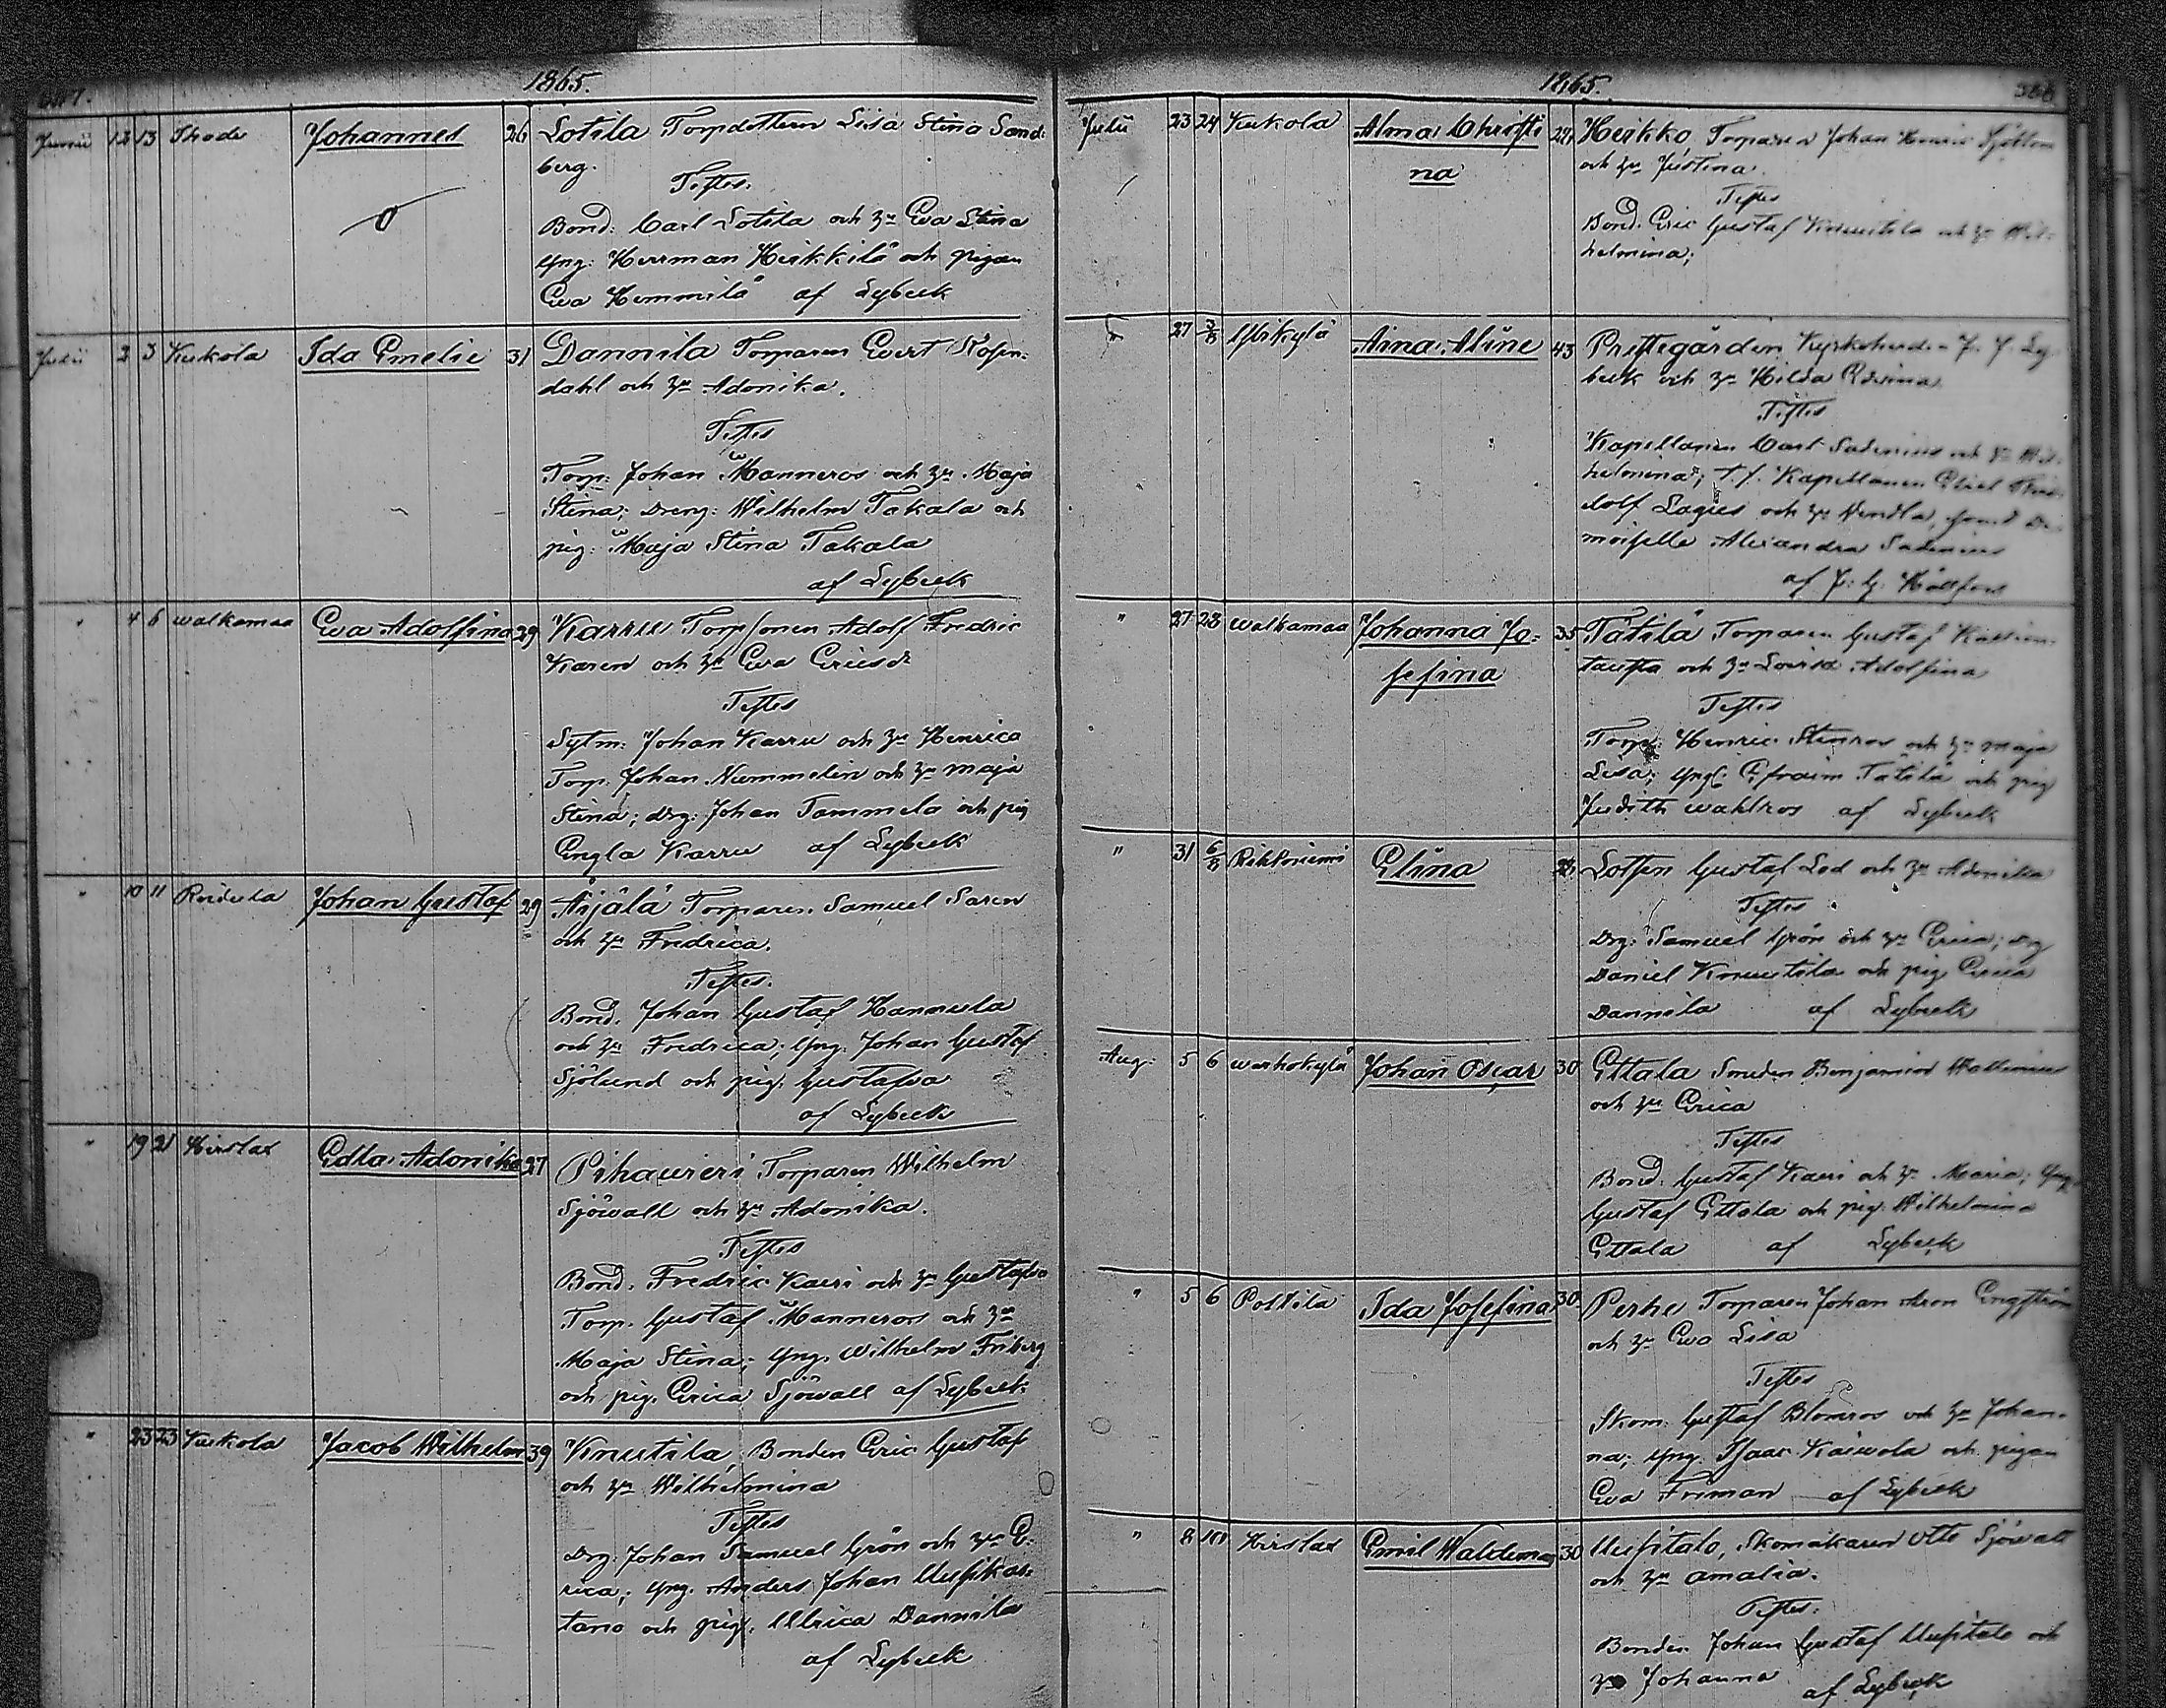 1865.
Junii 12 13 Thode Johannes 26 Lotila Torpdottern Lisa Stina Sand-
berg.
Testes.
Bond: Carl Lotila och h:u Eva Stina
yng: Herrman Heikkilä och pigan
Eva Hemmilä af Lybeck
Julii 2 3 Kukola Ida Emelie 31 Dannila Torparen Evert Rosen-
dahl och h:u Adonika.
Testes
Torp: Johan Manneros och h:u Maja
Stina; Dreng: Wilhelm Takala och
pig: Maja Stina Takala
af Lybeck
" 4 6 walkamaa Eva Adolfina 29 Karru Torpsonen Adolf Fredric
Karen och h:u Eva Ericsdr
Testes
Sytm: Johan Karru och h:u Henrica
Torp. Johan Nummelin och h:u Maja
Stina; drg: Johan Tammela och pig
Engla Karru af Lybeck
" 10 11 Johan Gustaf 29 Äijälä Torparen Samuel Saren
och h:u Fredrica.
Testes.
Bond. Johan Gustaf Hannula
och h:u Fredrica; yng. Johan Gustaf
Sjölund och pig: Gustafva
af Lybeck
" 19 21 Hirslax Edla Adonika 27 Pihaurieri Torparen Wilhelm
Sjöwall och h:u Adonika.
Testes
Bond. Fredric Kauri och h:u Gustafva
Torp. Gustaf Manneros och h:u
Maja Stina; yng. Wilhelm Friberg
och pig. Erica Sjöwall af Lybeck
" 23 23 Kukola Jacob Wilhelm 39 Knutila, Bonden Eric Gustaf
och h:u Wilhelmina
Testes
Drg: Johan Samuel Grön och h:u E-
rica; yng. Anders Johan
och pig. Ulrica Dannila
af Lybeck
1865. 388
Julii 23 24 Kukola Alma Christi- Heikko, Torparen Johan Henric
na och h:u Justina.
Testes
Bond. Eric Gustaf Knuutila och h:u Wil-
helmina;
27 Ylikylä Aina Aline 43 Prestegården Kyrkoherden J. J. Ly-
beck och h:u Hilda
Testes
Kapellanen Carl och h:u Wil-
helmina; T.f. Kapellanen
dolf Lagus och h:u Hendla, samt De-
moiselle Alexandra
af
" 27 28 walkamaa Johanna Jo- 35 Tätilä Torparen Gustaf
sefina och h:u Lovisa Adolfina
Testes
Torp: Henric Stenros och h:u Maja
Lisa; yngl. Efraim Tätilä och pig
Judith Wahlros af Lybeck
" 31 6/8 Rihtniemi Elina Lotsen Gustaf Lod och h:u Adonika
Testes
Drg: Samuel Grön och h:u Erica; drg
Daniel Knuutila och pig Erica
Dannila af Lybeck
Aug: 5 6 warhokylä Johan Oscar 30 Ettala Smeden Benjamin Wallenius
och h:u Erica
Testes
Bond. Gustaf Kauri och h:u Maria; Yng.
Gustaf Ettala och pig: Wilhelmina
Ettala af Lybeck
" 5 6 Poltila Ida Josefina 30 Perhe Torparen Johan Aron Engström
och h:u Eva Lisa
Testes
Skom: Gustaf Blomros och h:u Johan-
na; yng. Isaac Kaiwola och pigan
Eva Friman af Lybeck
" 8 10 Hirslax Emil Waldemar 30 Uusitalo, Skomakaren Otto Sjöwall
och h:u Amalia.
Testes.
Bonden Johan Gustaf Uusitalo och
h:u Johanna af Lybeck